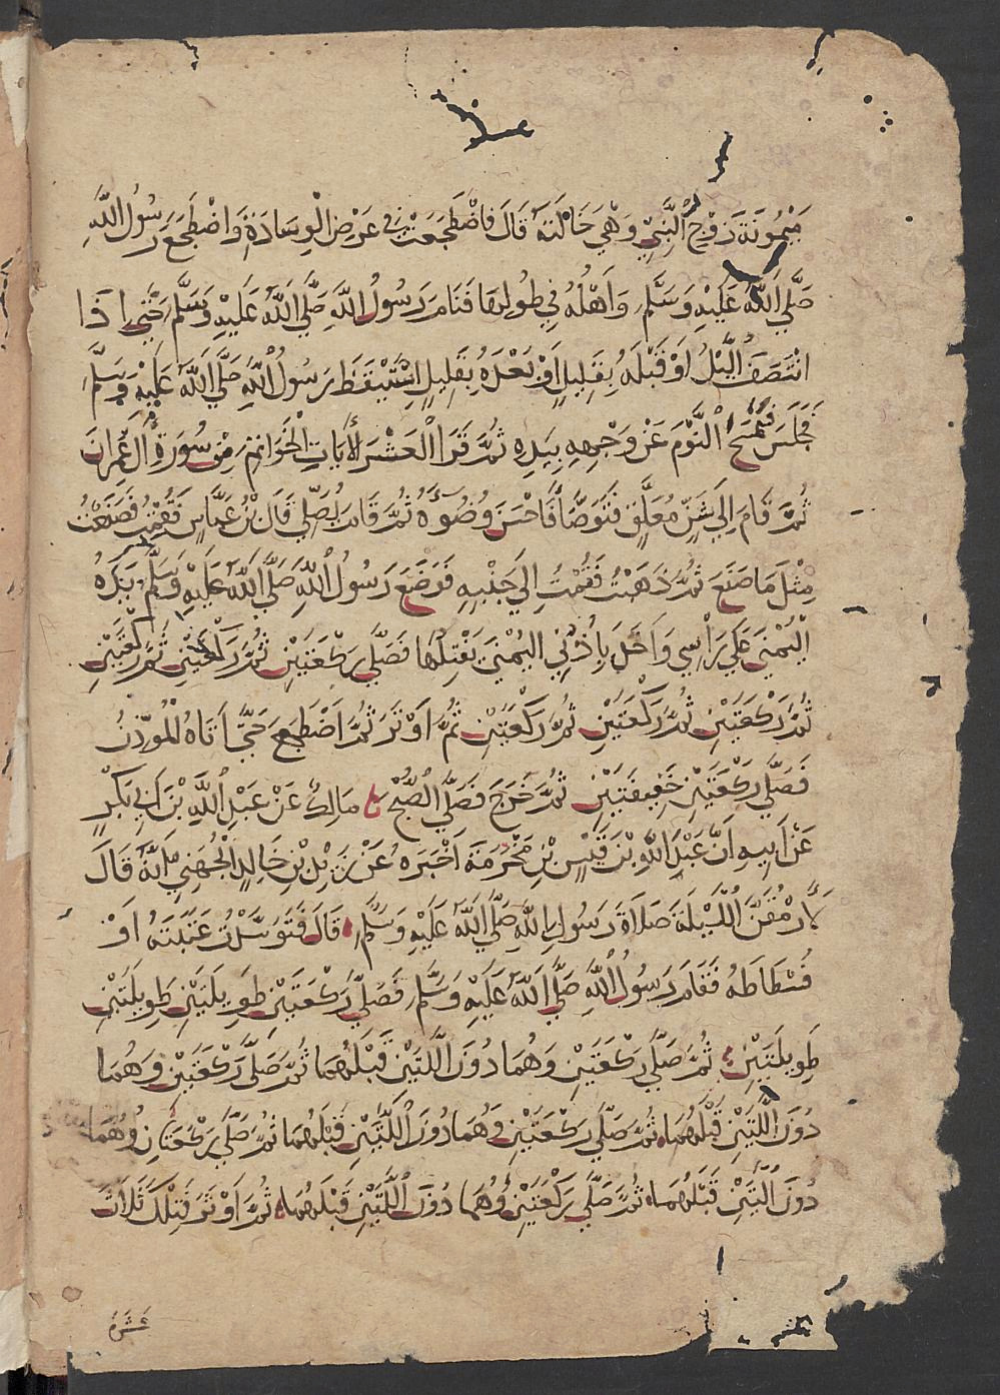 مَيْمُونَةَ زَوْجِ النَّبِيِّ وَهْيَ خَالَتَهُ قَالَ فَاضْطَجَعْتُ فِي عَرْضِ الْوِسَادَةِ وَاضْطَجَعَ رَسُولُ اللَّهِ
صَلَّى اللَّهُ عَلَيْهِ وَسَلَّم وَأَهْلُهُ فِي طُولِهَا فَنَامَ رَسُولُ اللَّهِ صَلَّى اللَّهُ عَلَيْهِ وَسَلَّم حَتَّى إِذَا
انْتَصَفَ الَّيْلُ أَوْ قَبْلَهُ بِقَلِيلٍ أَوْ بَعْدَهُ بِقَلِيلٍ اسْتَيْقَظَ رَسُولُ اللَّهِ صَلَّى اللَّهُ عَلَيْهِ وَسَلَّم
فَجَلَسَ فَمَسَحَ النَّوْمَ عَنْ وَجْهِهِ بِيَدِهِ ثُمَّ قَرَا الْعَشْرَ الْأَيَاتِ الْخَوَاتِمَ مِنْ سُورَةِ آلِ عِمْرَانَ
ثُمَّ قَامَ إِلَى شَنٍّ مُعَلَّقٍ فَتَوَضَّأَ فَأَحْسَنَ وُضُوءَهُ ثُمَّ قَامَ يُصَلِّي قَالَ بْنُ عَبَّاسٍ فَقُمْتُ فَصَنَعْتُ
مِثْلَ مَا صَنَعَ ثُمَّ ذَهَبْتُ فَقُمْتُ إِلَى جَنْبِهِ فَوَضَعَ رَسُولُ اللَّهِ صَلَّى اللَّهُ عَلَيْهِ وَسَلَّم يَدَهُ
الْيُمْنَى عَلَى رَأْسِي وَأَخَذَ بِأُذُنِي الْيُمْنَى يَفْتِلُهَا فَصَلَّى رَكْعَتَيْنِ ثُمَّ رَكْعَتَيْنِ ثُمَّ رَكْعَتَيْنِ
ثُمَّ رَكْعَتَيْنِ ثُمَّ رَكْعَتَيْنِ ثُمَّ رَكْعَتَيْنِ ثُمَّ أَوْتَرَ ثُمَّ اضْطَجَعَ حَتَّى أَتَاهُ الْمُؤَذِّنُ
فَصَلَّى رَكْعَتَيْنِ خَفِيفَتَيْنِ ثُمَّ خَرَجَ فَصَلَّى الصُّبْحَ مَالِكٌ عَنْ عَبْدِ اللَّهِ بْنِ أَبِي بَكْرٍ
عَنْ أَبِيهِ أَنَّ عَبْدَ اللَّهِ بْنَ قَيْسِ بْنِ مَخْرَمَةَ أَخْبَرَهُ عَنْ زَيْدِ بْنِ خَالِدٍ الْجُهَنِيِّ أَنَّهُ قَالَ
لَأَرْمُقَنَّ اللَّيْلَةَ صَلَاةَ رَسُولِ اللَّهِ صَلَّى اللَّهُ عَلَيْهِ وَسَلَّم قَالَ فَتَوَسَّدْتُ عَتَبَتَهُ أَوْ
فُسْطَاطَهُ فَقَامَ رَسُولُ اللَّهِ صَلَّى اللَّهُ عَلَيْهِ وَسَلَّم فَصَلَّى رَكْعَتَيْنِ طَوِيلَتَيْنِ طَوِيلَتَيْنِ
طَوِيلَتَيْنِ ثُمَّ صَلَّى رَكْعَتَيْنِ وَهُمَا دُونَ اللَّتَيْنِ قَبْلَهُمَا ثُمَّ صَلَّى رَكْعَتَيْنِ وَهُمَا
دُونَ اللَّتَيْنِ قَبْلَهُمَا ثُمَّ صَلَّى رَكْعَتَيْنِ وَهُمَا دُونَ اللَّتَيْنِ قَبْلَهُمَا ثُمَّ صَلَّى رَكْعَتَانِ وَهُمَا
دُونَ الَّتَيْنِ قَبْلَهُمَا ثُمَّ صَلَّى رَكْعَتَيْنِ وَهُمَا دُونَ اللَّتَيْنِ قَبْلَهُمَا ثُمَّ أَوْتَرَ فَتِلْكَ ثَلَاثَ
عَشْرَةَ